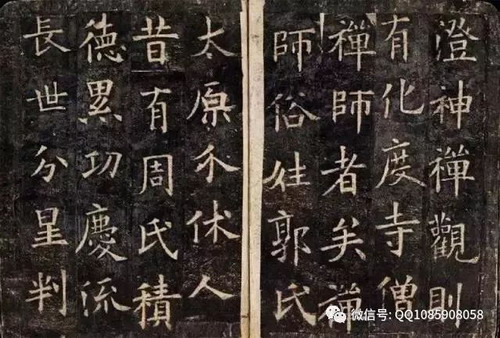 澄神禪觀則
有化度寺僧
禪師者矣禪
師俗姓郭氏
太原介休人
昔有周氏積
德累功慶流
長世分星判
微信号: QQ1085908058